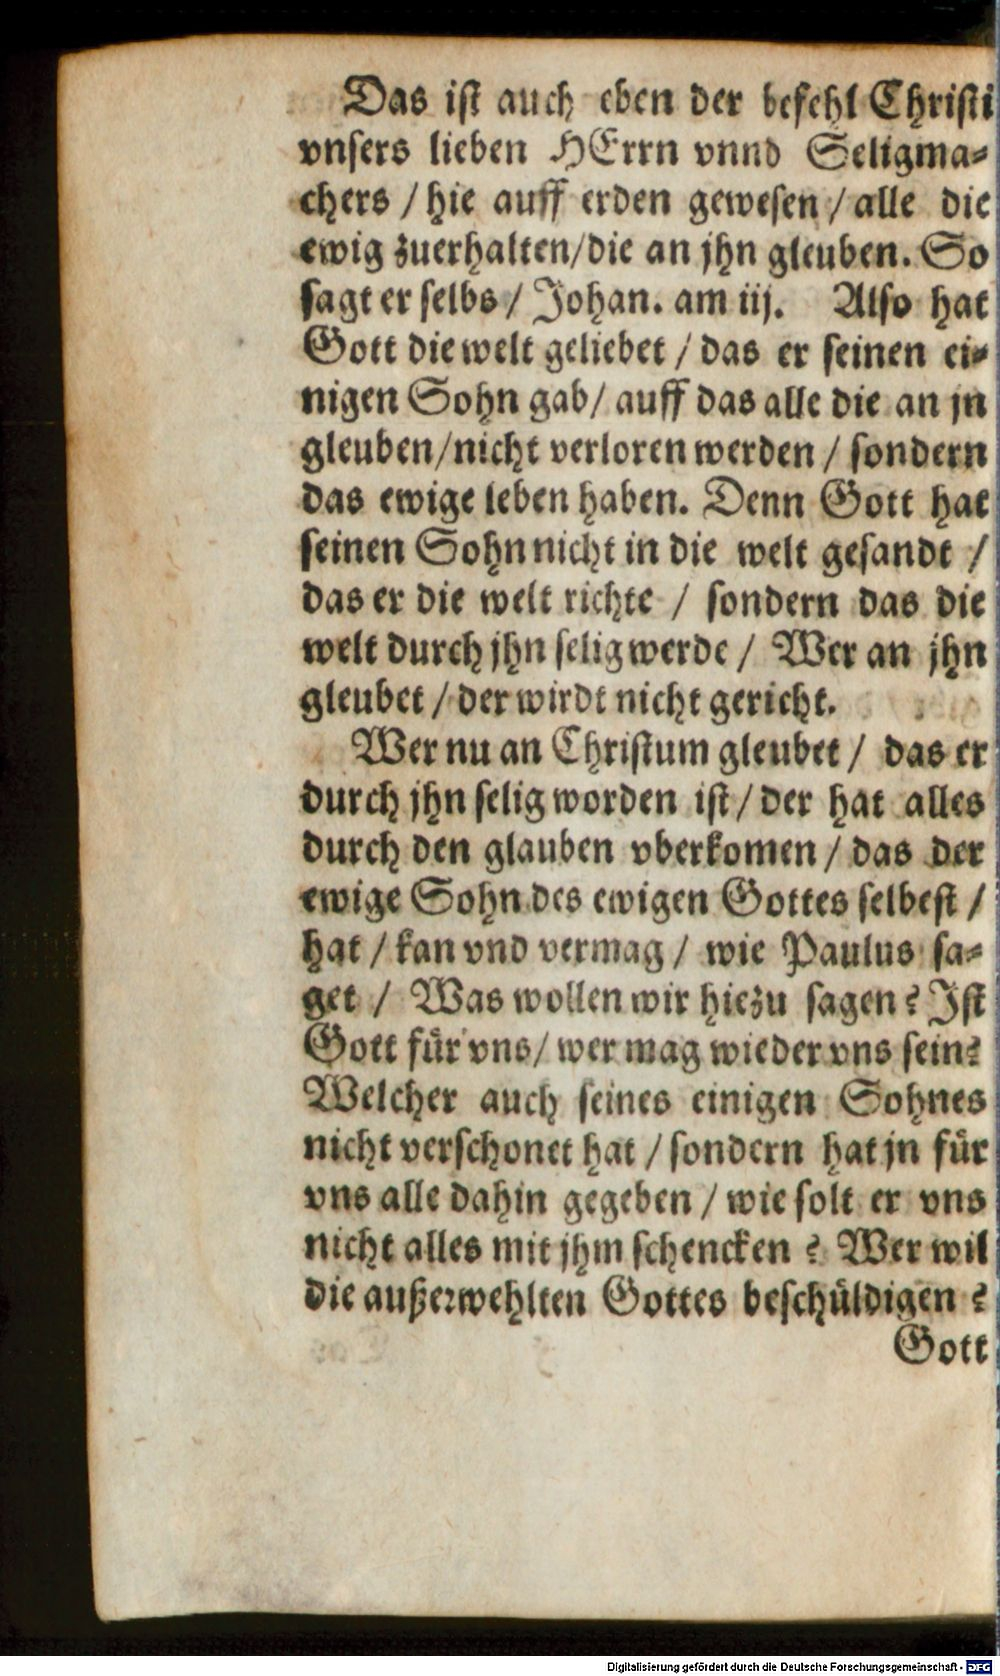 Das ist auch eben der befehl Christi
vnsers lieben HErrn vnnd Seligma-
chers / hie auff erden gewesen / alle die
ewig zuerhalten/die an jhn gleuben. So
sagt er selbs / Johan. am iij. Also hat
Gott die welt geliebet / das er seinen ei-
nigen Sohn gab/ auff das alle die an jn
gleuben/nicht verloren werden / sondern
das ewige leben haben. Denn Gott hat
seinen Sohn nicht in die welt gesandt /
das er die welt richte / sondern das die
welt durch jhn selig werde / Wer an jhn
gleubet / der wirdt nicht gericht.
Wer nu an Christum gleubet / das er
durch jhn selig worden ist / der hat alles
durch den glauben vberkomen / das der
ewige Sohn des ewigen Gottes selbest /
hat / kan vnd vermag / wie Paulus sa-
get / Was wollen wir hiezu sagen? Ist
Gott für vns/ wer mag wieder vns sein?
Welcher auch seines einigen Sohnes
nicht verschonet hat / sondern hat jn für
vns alle dahin gegeben / wie solt er vns
nicht alles mit jhm schencken ? Wer wil
die außerwehlten Gottes beschüldigen ?
Gott
Digitalisierung gefördert durch die Deutsche Forschungsgemeinschaft - DFG